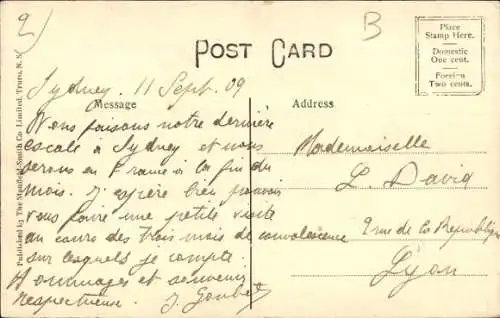 2)
B
POST CARD
Place
Stamp Here.
Domestic
One cent.
Foreign
Two cents.
Sydney. 11 Sept. 09
Message
Address
Nous faisons notre dernière
escale à Sydney et nous
serons en France à la fin du
mois. J'espère bien pouvoir
vous faire une petite visite
au cours des trois mois de convalescence
sur lesquels je compte.
Hommages et souvenir
respectueuse. J. Goubet
Mademoiselle
L. David
2 rue de la République
Lyon
Published by The Stanfield-Smith Co. Limited, Truro, N.S.